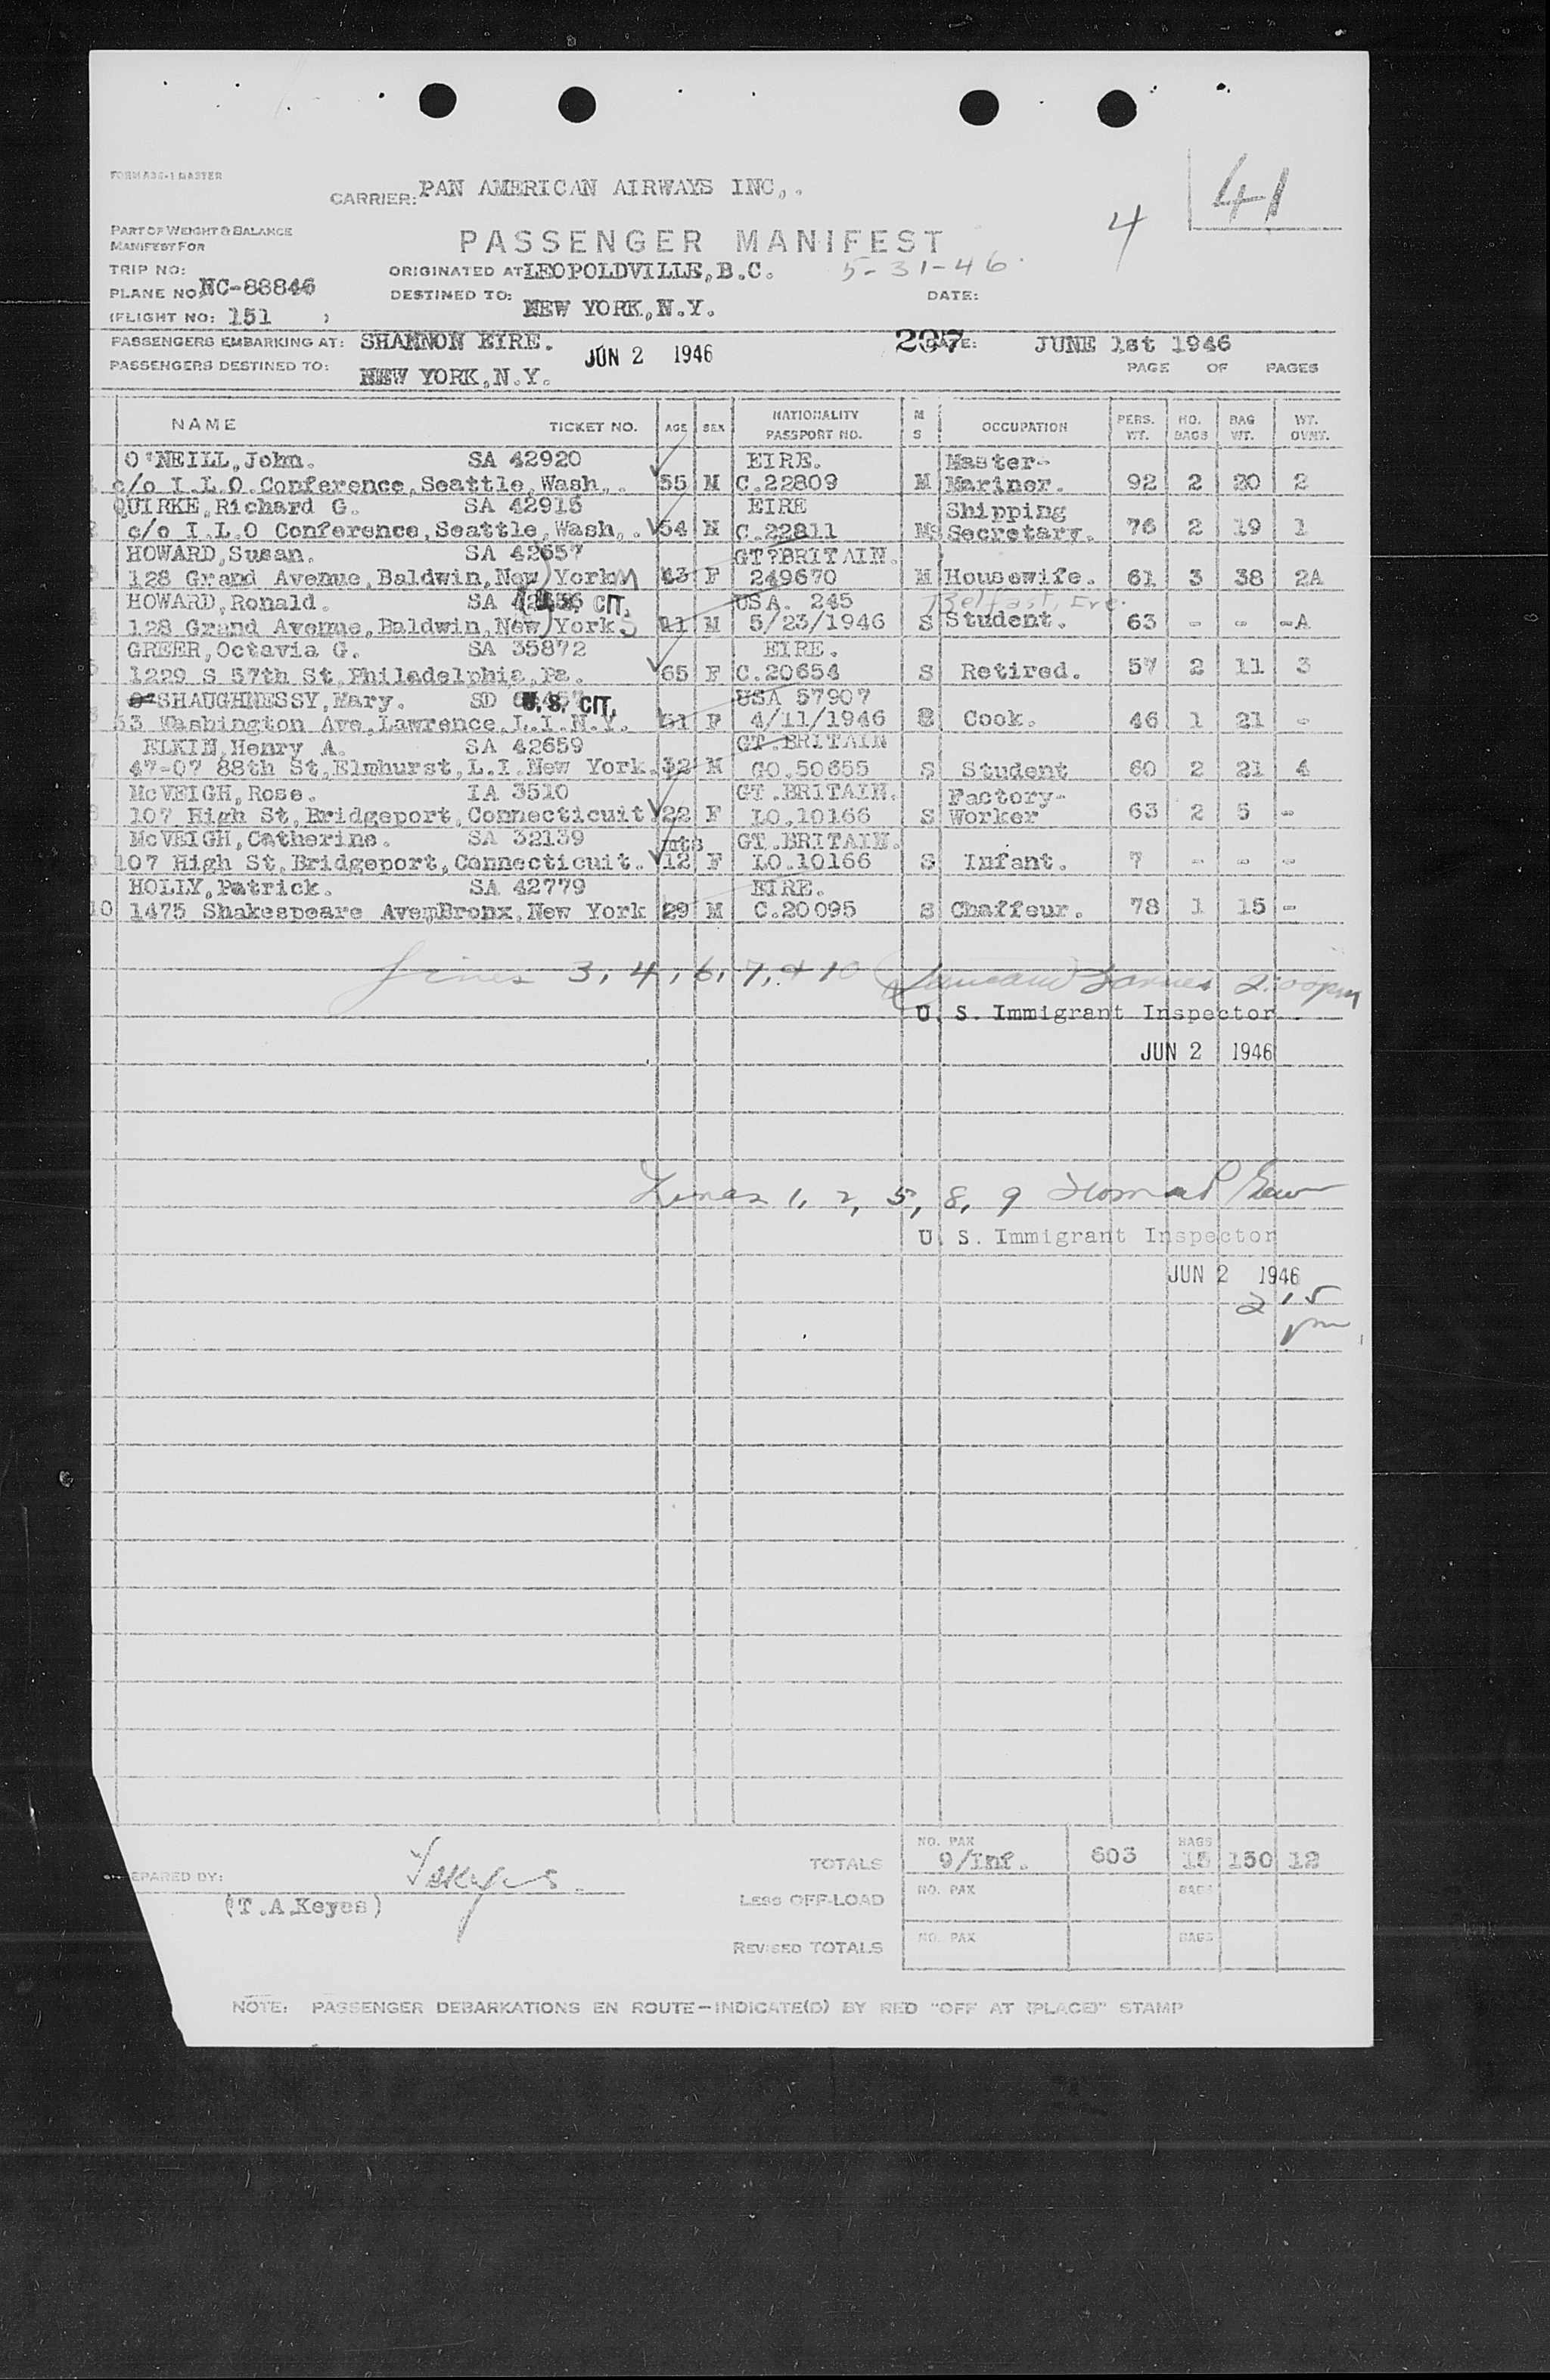 41
4
FORM A36-1 MASTER
CARRIER: PAN AMERICAN AIRWAYS INC,.
PART OF WEIGHT & BALANCE
MANIFEST FOR
PASSENGER MANIFEST
TRIP NO:
ORIGINATED AT LEOPOLDVILLE,B.C. 5-31-46
PLANE NO: NC-88846
DESTINED TO: NEW YORK,N.Y. DATE:
(FLIGHT NO: 151 )
PASSENGERS EMBARKING AT: SHANNON EIRE. JUN 2 1946 207 DATE: JUNE 1st 1946
PASSENGERS DESTINED TO: NEW YORK,N.Y. PAGE OF PAGES
NAME TICKET NO. AGE SEX NATIONALITY PASSPORT NO. M S OCCUPATION PERS. WT. NO. BAGS BAG WT. WT. OVWT.
O'NEILL,John. SA 42920 EIRE. Master-
c/o I.L.O.Conference,Seattle,Wash,. 55 M C.22809 M Mariner. 92 2 20 2
QUIRKE,Richard G. SA 42915 EIRE Shipping
2 c/o I.L.O Conference,Seattle,Wash,. 54 M C.22811 MS Secretary. 76 2 19 1
HOWARD,Susan. SA 42657 GT?BRITAIN.
3 128 Grand Avenue,Baldwin,New York M 43 F 249670 M Housewife. 61 3 38 2A
HOWARD,Ronald. SA U.S. CIT. USA. 245 Belfast, Ire.
128 Grand Avenue,Baldwin,New York S 11 M 5/23/1946 S Student. 63 - - -A
GREER,Octavia G. SA 35872 EIRE.
5 1229 S 57th St.Philadelphia,Pa. 65 F C.20654 S Retired. 57 2 11 3
SHAUGHNESSY,Mary. SD U.S. CIT. USA 57907
53 Washington Ave,Lawrence,L.I.N.Y. 51 F 4/11/1946 S Cook. 46 1 21 -
ELKIN,Henry A. SA 42659 GT.BRITAIN
7 47-07 88th St,Elmhurst,L.I.New York. 32 M GO.50655 S Student 60 2 21 4
McVEIGH,Rose. IA 3510 GT.BRITAIN. Factory-
8 107 High St,Bridgeport,Connecticut 22 F LO.10166 S Worker 63 2 5 -
McVEIGH,Catherine. SA 32139 mts GT.BRITAIN.
107 High St,Bridgeport,Connecticut. 12 F LO.10166 S Infant. 7 - - -
HOLLY,Patrick. SA 42779 EIRE.
10 1475 Shakespeare Ave,Bronx,New York 29 M C.20095 S Chaffeur. 78 1 15 -
Lines 3, 4, 6, 7, & 10 2:00pm
U. S. Immigrant Inspector
JUN 2 1946
Lines 1, 2, 5, 8, 9
U. S. Immigrant Inspector
JUN 2 1946
2 15
pm
TOTALS NO. PAX 9/Inf. 603 BAGS 15 150 12
PREPARED BY: TAKeyes.
(T.A.Keyes)
LESS OFF-LOAD NO. PAX BAGS
REVISED TOTALS NO. PAX BAGS
NOTE: PASSENGER DEBARKATIONS EN ROUTE—INDICATE(D) BY RED "OFF AT (PLACE)" STAMP